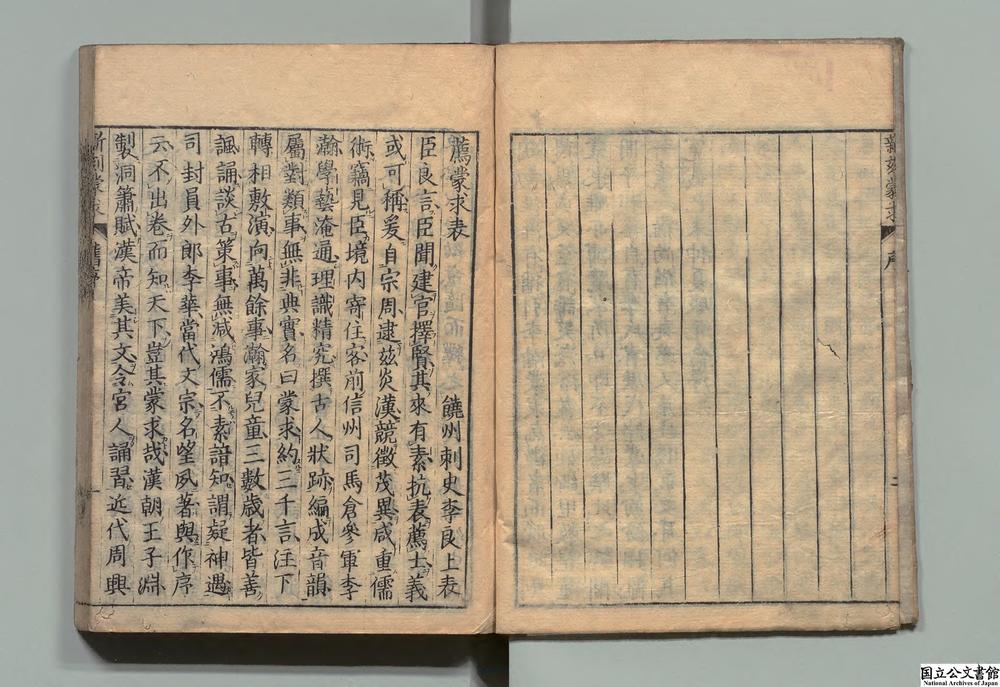 新刻蒙求
序
二
薦蒙求表
饒州刺史李良上表
臣良言臣聞建官擇賢其來有素抗表薦士義
或可稱爰自宗周逮玆炎漢競徵茂異咸重儒
術竊見臣境内寄住客前信州司馬倉參軍李
瀚學藝淹通理識精究撰古人狀跡編成音韻
屬對類事無非典實名曰蒙求約三千言注下
轉相敷演向萬餘事瀚家兒童三數歲者皆善
諷誦談古策事無減鴻儒不素諳知謂疑神遇
司封員外郎李華當代文宗名望夙著與作序
云不出卷而知天下豈其蒙求哉漢朝王子淵
製洞簫賦漢帝美其文令宮人誦習近代周興
國立公文書館
National Archives of Japan